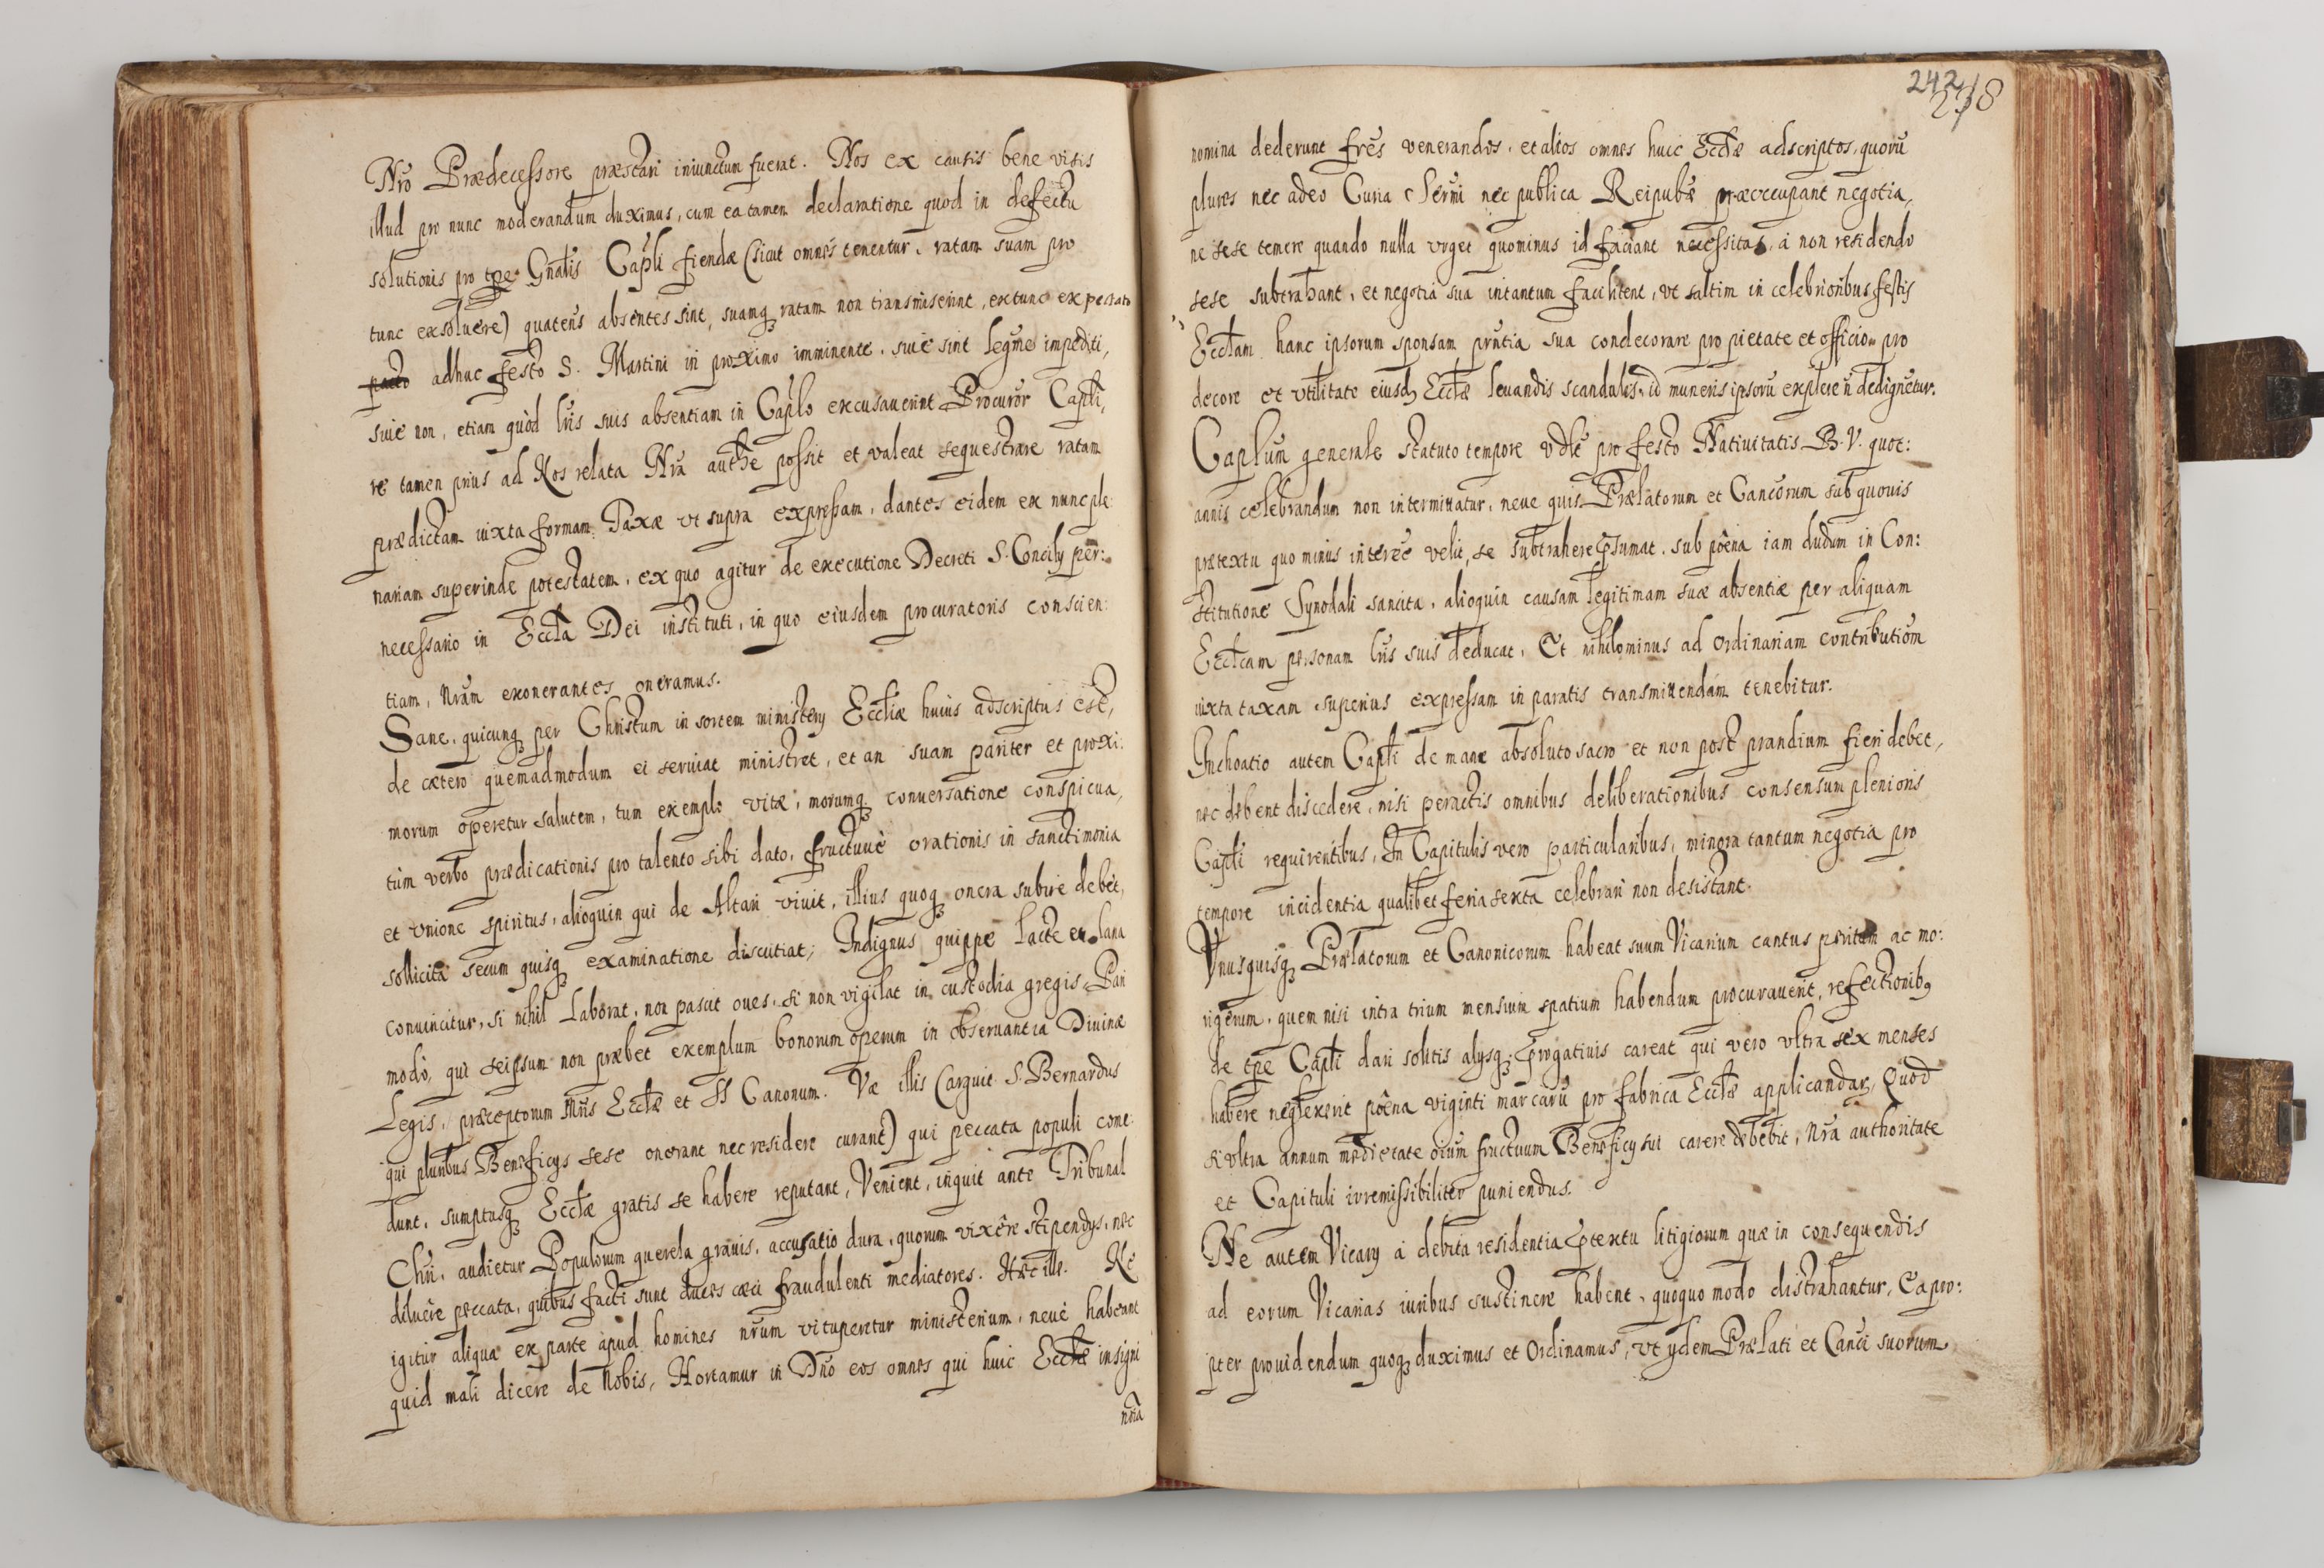 Nrō Prædecessore præstari iniunctum fuerat. Nos ex causis bene visis
illud pro nunc moderandum duximus, cum ea tamen declaratione quod in defectu
solutionis pro tpe Gnālis Capli fiendæ (sicut omnes tenentur, ratam suam pro
tunc exsoluere) quatenus absentes sint, suamq ratam non transmiserint, extunc expectato
adhuc festo S. Martini in proximo imminente, siue sint legme impediti,
siue non, etiam quòd lris suis absentiam in Caplo excusauerint Procuror Capli,
re tamen prius ad Nos relata Nra authe possit et valeat sequestrare ratam
prædictam iuxta formam Taxæ vt supra expressam, dantes eidem ex nunc ple
nariam superinde potestatem, ex quo agitur de executione Decreti S. Concily per:
necessario in Eccla Dei instituti, in quo eiusdem procuratoris conscien:
tiam, Nram exonerantes oneramus.
Sane, quicunq per Christum in sortem ministery Eccliæ huius adscriptus est,
de cætero quemadmodum ei seruiat ministret, et an suam pariter et proxi:
morum operetur salutem, tum exemplo vitæ, morumq conuersatione conspicua,
tùm verbo prædicationis pro talento sibi dato, fructuuè orationis in sanctimonia
et vnione spiritus, alioquin qui de Altari viuit, illius quoq onera subire debet,
sollicita secum quisq examinatione discutiat; Indignus quippe lacte et lana
conuincitur, si nihil laborat, non pascit oues, si non vigilat in custodia gregis, Pari
modò, qui seipsum non præbet exemplum bonorum operum in obseruantia Diuinæ
Legis, præceptorum Mris Ecclæ et SS Canonum. Væ illis (arguit S. Bernardus
qui pluribus Beneficys sese onerant nec residere curant) qui peccata populi come
dunt, sumptusq Ecclæ gratis se habere reputant, Venient, inquit ante Tribunal
Chri, audietur Populorum querela grauis, accusatio dura, quorum vixêre stipendys, nec
diluêre peccata, quibus facti sunt duces cæci fraudulenti mediatores. Hæc ille. Ne
igitur aliqua ex parte apud homines nrum vituperetur ministerium, neuè habeant
quid mali dicere de Nobis, Hortamur in Dno eos omnes qui huic Ecclæ insigni
nōia
242
238
nomina dederunt fres venerandos, et alios omnes huic Ecclæ adscriptos, quorū
plures nec adeo Curia Sermi nec publica Reipubæ præoccupant negotia,
ne sese temere quando nulla vrget quominus id faciant necessitas, à non residendo
sese subtrahant, et negotia sua intantum facilitent, vt saltim in celebrioribus festis
Ecclam hanc ipsorum sponsam prntia sua condecorare pro pietate et officio, pro
decore et vtilitate eiusd Ecclæ leuandis scandalis, id muneris ipsorū explere ñ dedignetur.
Caplum generale statuto tempore vdlt pro festo Natiuitatis B. V. quot:
annis celebrandum non intermittatur, neue quis Prælatorum et Cancorum sub quouis
prætextu quo minus interee velit, se subtrahere psumat. sub pœna iam dudum in Con:
stitutione Synodali sancita, alioquin causam legitimam suæ absentiæ per aliquam
Ecclcam personam lris suis deducat, Et nihilominus ad ordinariam contributiom
iuxta taxam superius expressam in paratis transmittendam tenebitur.
Inchoatio autem Capli de mane absoluto sacro et non post prandium fieri debet,
nec debent discedere, nisi peractis omnibus deliberationibus consensum plenioris
Capli requirentibus, In Capitulis vero particularibus, minora tantum negotia pro
tempore incidentia qualibet feria sexta celebrari non desistant.
Vnusquisq Prælatorum et Canonicorum habeat suum Vicarium cantus peritum ac mo:
rigerum, quem nisi intra trium mensium spatium habendum procurauerit, refectionibq
de tpe Capli dari solitis alysq progatiuis careat, qui vero vltra sex menses
habere neglexerit pœna viginti marcarū pro fabrica Ecclæ applicandar, Quod
si vltra annum medietate oium fructuum Beneficy sui carere debebit, Nra authoritate
et Capituli irremissibiliter puniendus.
Ne autem Vicary à debita residentia ptextu litigiorum quæ in consequendis
ad eorum Vicarias iuribus sustinere habent, quoquo modo distrahantur, Ea pro:
pter prouidendum quoq duximus et Ordinamus, vt ydem Prælati et Canci suorum